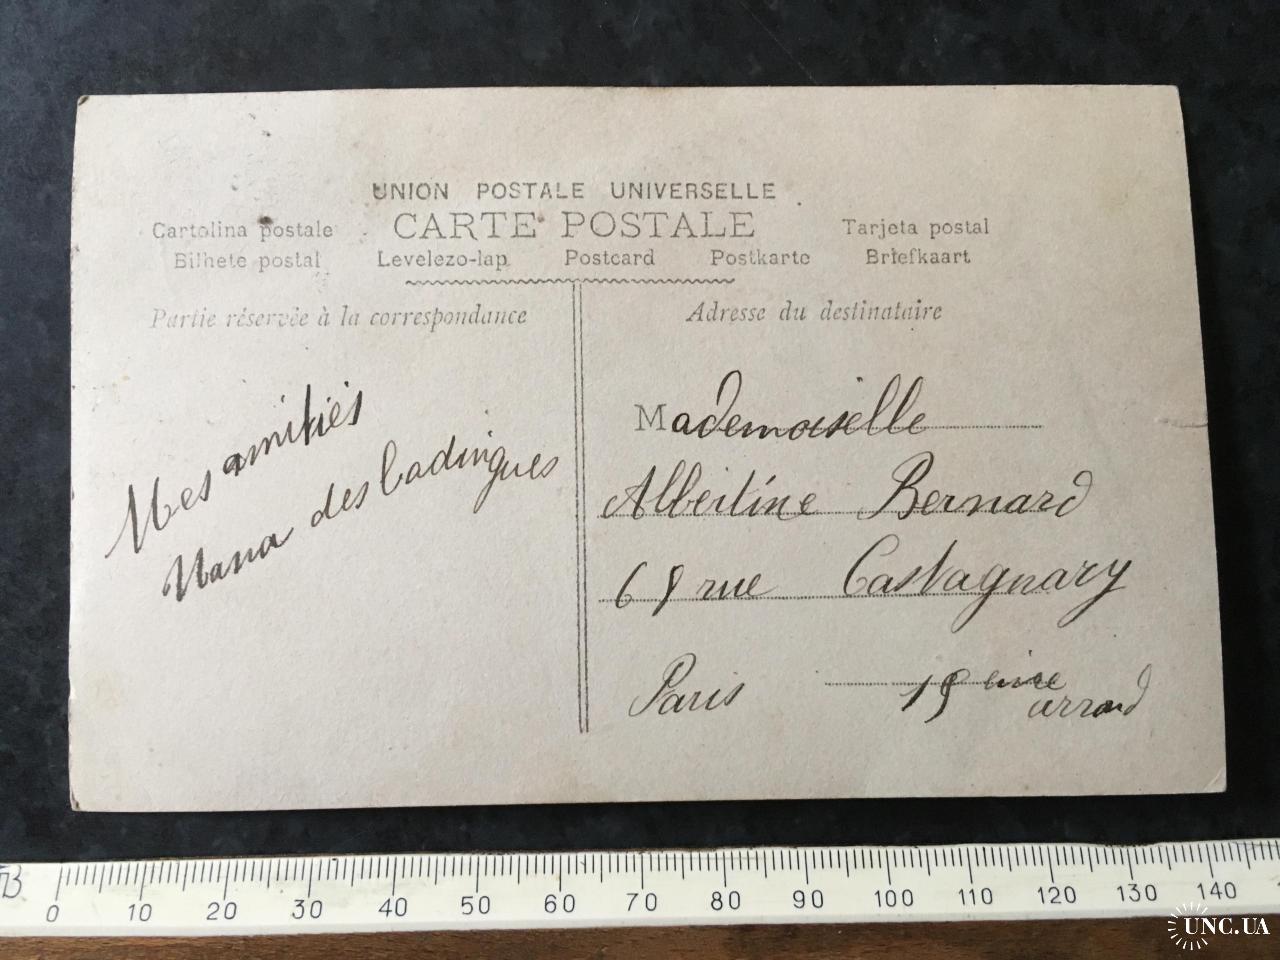 UNION POSTALE UNIVERSELLE
CARTE POSTALE
Cartolina postale Tarjeta postal
Bilhete postal Levelezo-lap Postcard Postkarte Briefkaart
Partie réservée à la correspondance
Mes amitiés
Nana des badingues
Adresse du destinataire
Mademoiselle
Albertine Bernard
68 rue Castagnary
Paris 15 eme
arrond
0 10 20 30 40 50 60 70 80 90 100 110 120 130 140
UNC.UA